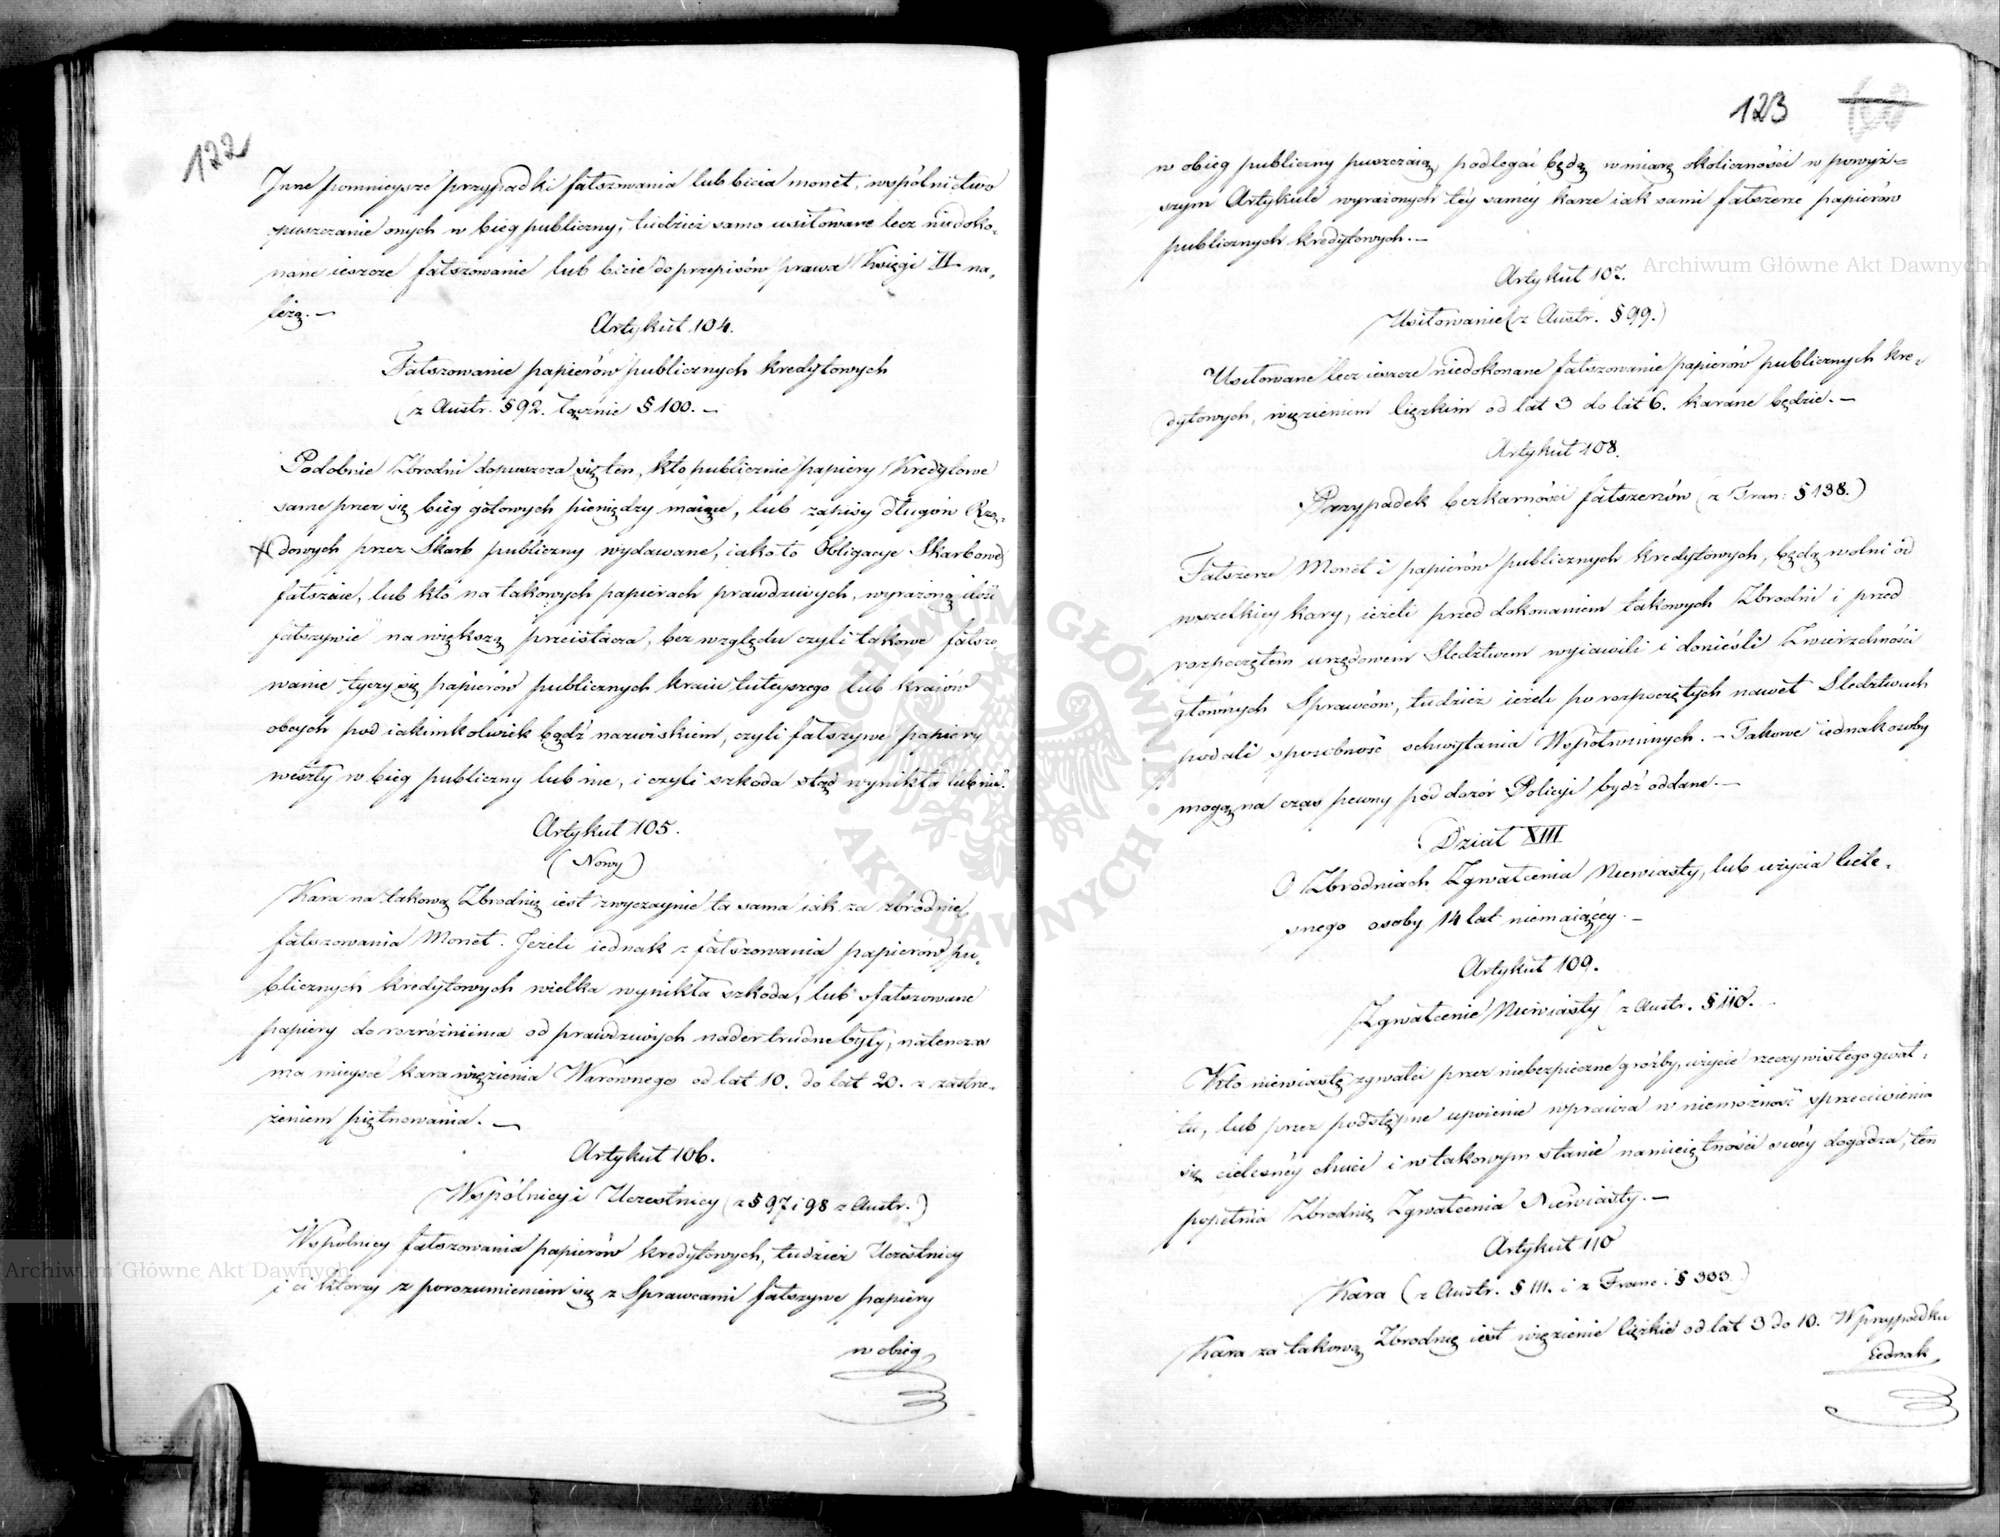 122
Inne pomnieysze przypadki fałszowania lub bicia monet, wspólnictwo
puszczanie onych w bieg publiczny, tudzież samo usiłowane lecz niedoko-
nane ieszcze fałszowanie lub bicie do przepisów prawa Księgi II na-
leżą. —
Artykuł 104.
Fałszowanie papierów publicznych kredytowych
(z Austr. § 92. łącznie § 100. —
Podobnie Zbrodni dopuszcza się ten, kto publicznie papiery Kredytowe
same przez się bieg gotowych pieniędzy maiące, lub zapisy długów Rzą-
dowych przez Skarb publiczny wydawane, iako to Obligacye Skarbowe
fałszuie, lub kto na takowych papierach prawdziwych, wyrażoną ilość
fałszywie na większą przeistacza, bez względu czyli takowe fałszo
wanie tyczy się papierów publicznych kraiu tuteyszego lub kraiów
obcych pod iakimkolwiek bądź nazwiskiem, czyli fałszywe papiery
weszły w bieg publiczny lub nie, i czyli szkoda stąd wynikła lub nie.
Artykuł 105.
(Nowy)
Kara na takową Zbrodnię iest zwyczaynie ta sama iak za zbrodnie
fałszowania Monet. Jeżeli iednak z fałszowania papierów pu-
blicznych kredytowych wielka wynikła szkoda, lub sfałszowane
papiery do rozróżnienia od prawdziwych nader trudne były, natenczas
ma miejsce kara więzienia Warownego od lat 10. do lat 20. z zastrze-
żeniem piętnowania. —
Artykuł 106.
Wspólnicy i Uczestnicy (z § 97 i 98 z Austr.)
Wspólnicy fałszowania papierów kredytowych, tudzież Uczestnicy
i ci którzy z porozumieniem się z Sprawcami fałszywe papiery
w obieg
123
w obieg publiczny puszczaią, podlegać będą w miarę okoliczności w powyż=
szym Artykule wyrażonych téy saméy karze iak sami fałszerze papierów
publicznych kredytowych. —
Artykuł 107.
Usiłowanie (z Austr. § 99.)
Usiłowane lecz ieszcze niedokonane fałszowanie papierów publicznych kre-
dytowych, więzieniem ciężkim od lat 3 do lat 6. karane będzie. —
Artykuł 108.
Przypadek bezkarności fałszerzów (z Fran: § 138.)
Fałszerze Monet i papierów publicznych kredytowych, będą wolni od
wszelkiey kary, ieżeli przed dokonaniem takowych Zbrodni i przed
rozpoczętem urzędowem Sledztwem wyiawili i donieśli Zwierzchności
głównych Sprawców, tudzież ieżeli po rozpoczętych nawet Sledztwach
podali sposobność schwytania Wspólwinnych. — Takowe iednak osoby
mogą na czas pewny pod dozór Policyi bydź oddane. —
Dział XIII
O Zbrodniach Zgwałcenia Niewiasty, lub użycia ciele-
snego osoby 14 lat niemaiącey. —
Artykuł 109.
Zgwałcenie Niewiasty (z Austr. § 110.
Kto niewiastę zgwałci przez niebezpieczne groźby, użycie rzeczywistego gwał-
tu, lub przez podstępne upoienie wprawia w niemożność sprzeciwienia
się cielesnéy chuci i w takowym stanie namiętności swéy dogadza, ten
popełnia Zbrodnię Zgwałcenia Niewiasty. —
Artykuł 110
Kara (z Austr. § 111. i z Franc: § 333.)
Kara za takową Zbrodnię iest więzienie ciężkie od lat 3 do 10. W przypadku
iednak
Archiwum Główne Akt Dawnych
Archiwum Główne Akt Dawnych
ARCHIWUM GŁÓWNE · AKT DAWNYCH ·